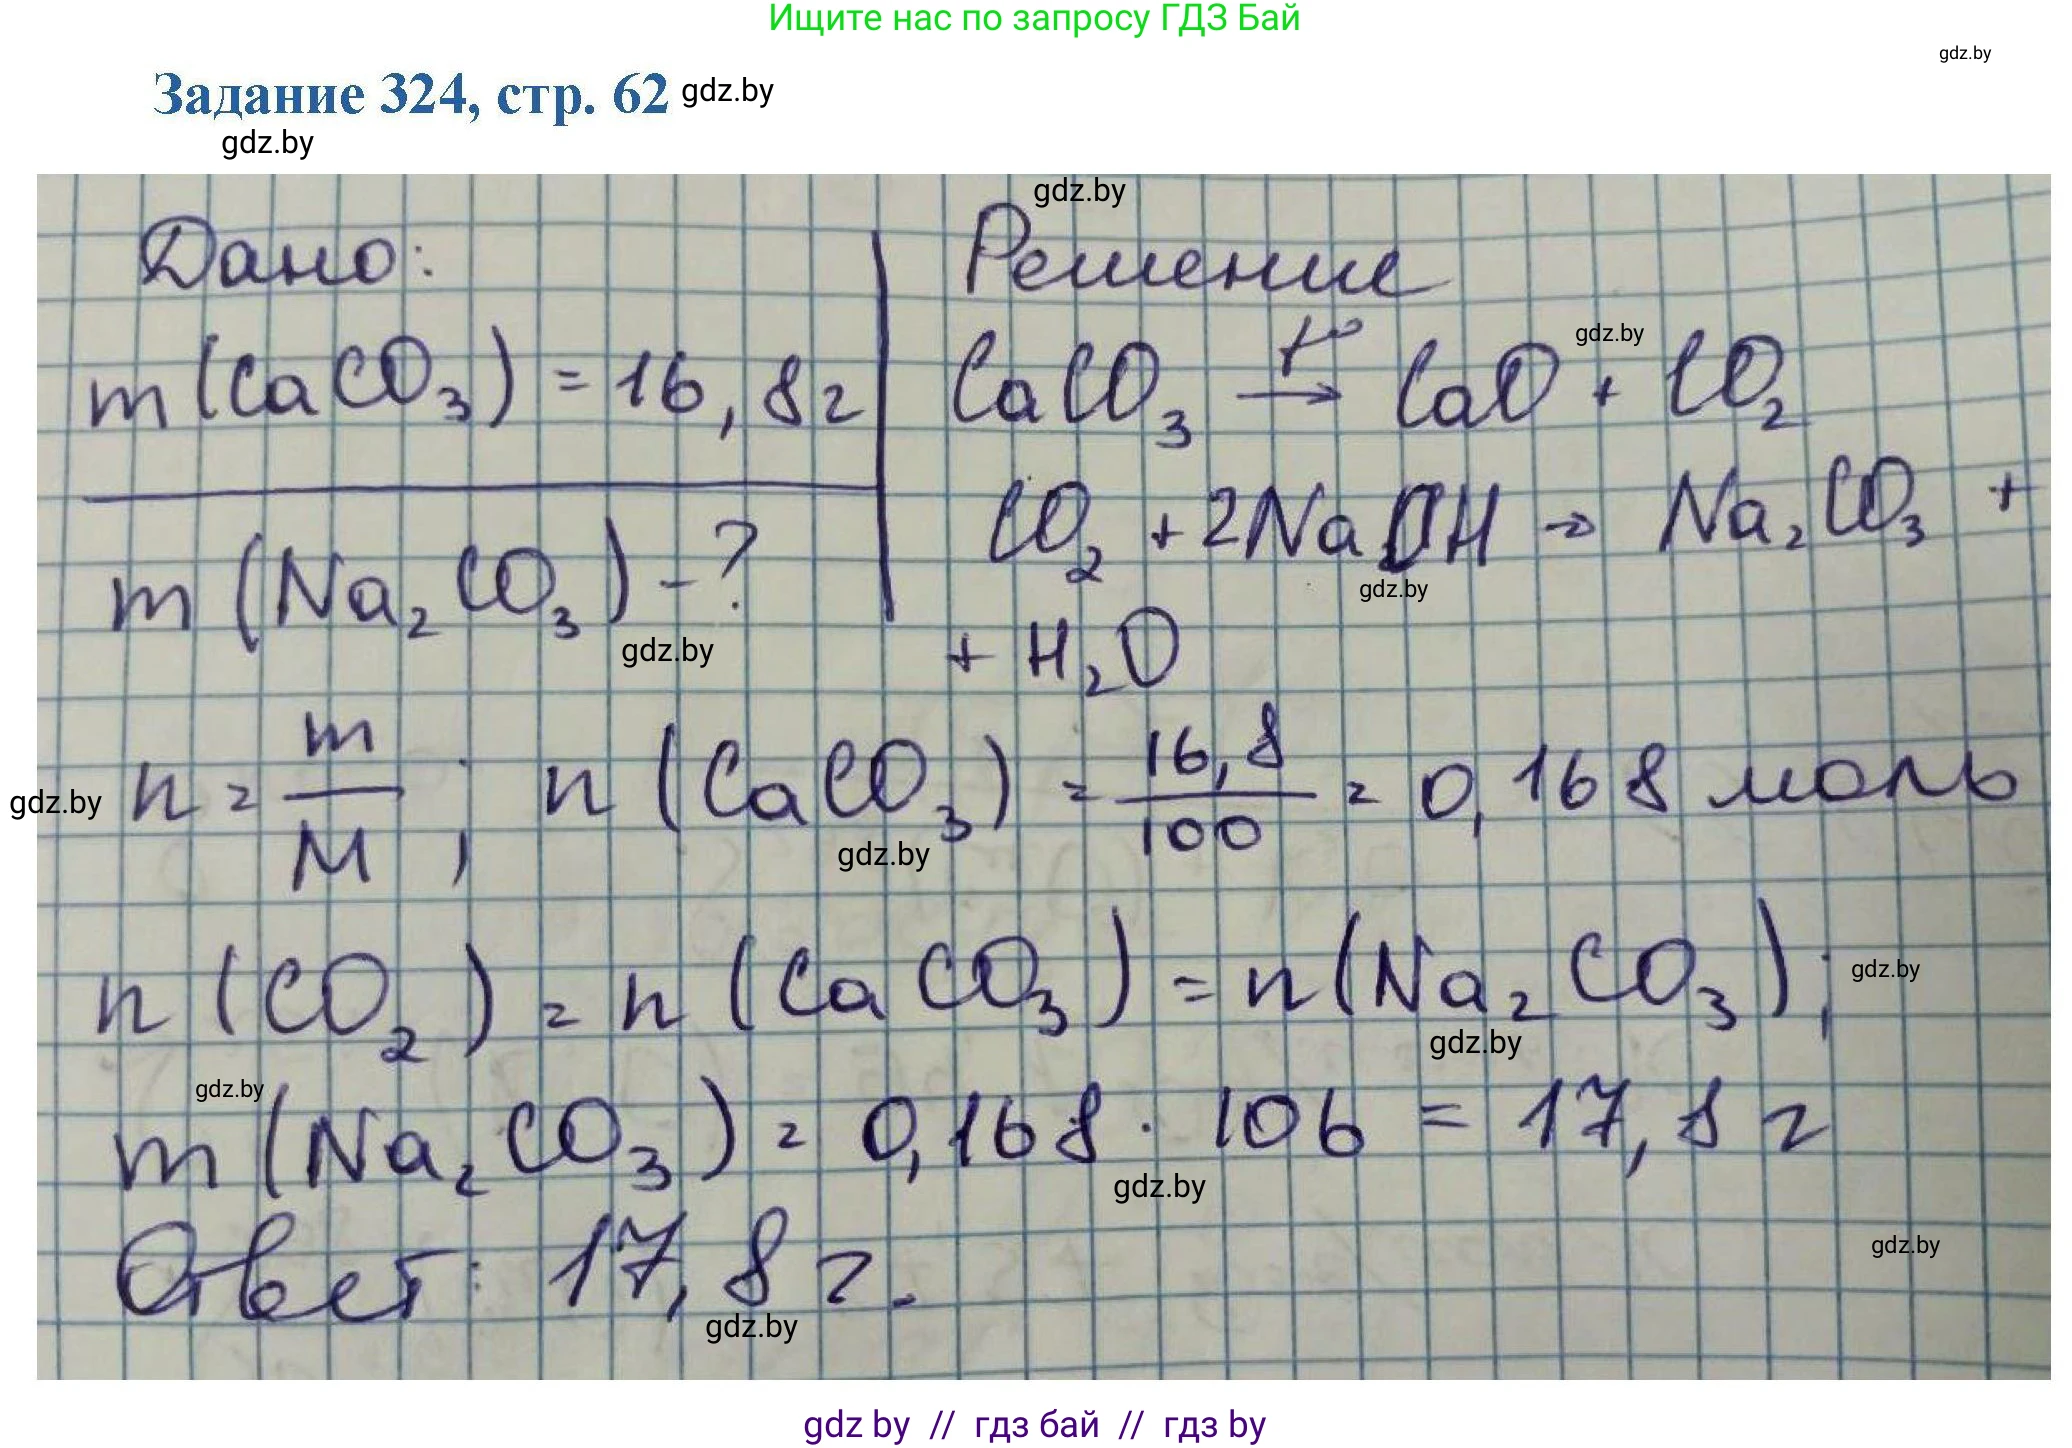 Ищите нас по запросу ГДЗ Бай
gdz.by
Задание 324, стр. 62 gdz.by
gdz.by
gdz.by
Дано:
m(CaCO₃) = 16,8г
m(Na₂CO₃) - ?
gdz.by
Решение
gdz.by
CaCO₃ t°→ CaO + CO₂
CO₂ + 2NaOH → Na₂CO₃ +
gdz.by
+ H₂O
n = m/M ; n(CaCO₃) = 16,8/100 = 0,168 моль
gdz.by
gdz.by
n(CO₂) = n(CaCO₃) = n(Na₂CO₃);
gdz.by
gdz.by
gdz.by
m(Na₂CO₃) = 0,168 · 106 = 17,8 г
gdz.by
Ответ: 17,8 г.
gdz.by
gdz.by
gdz by // гдз бай // гдз by